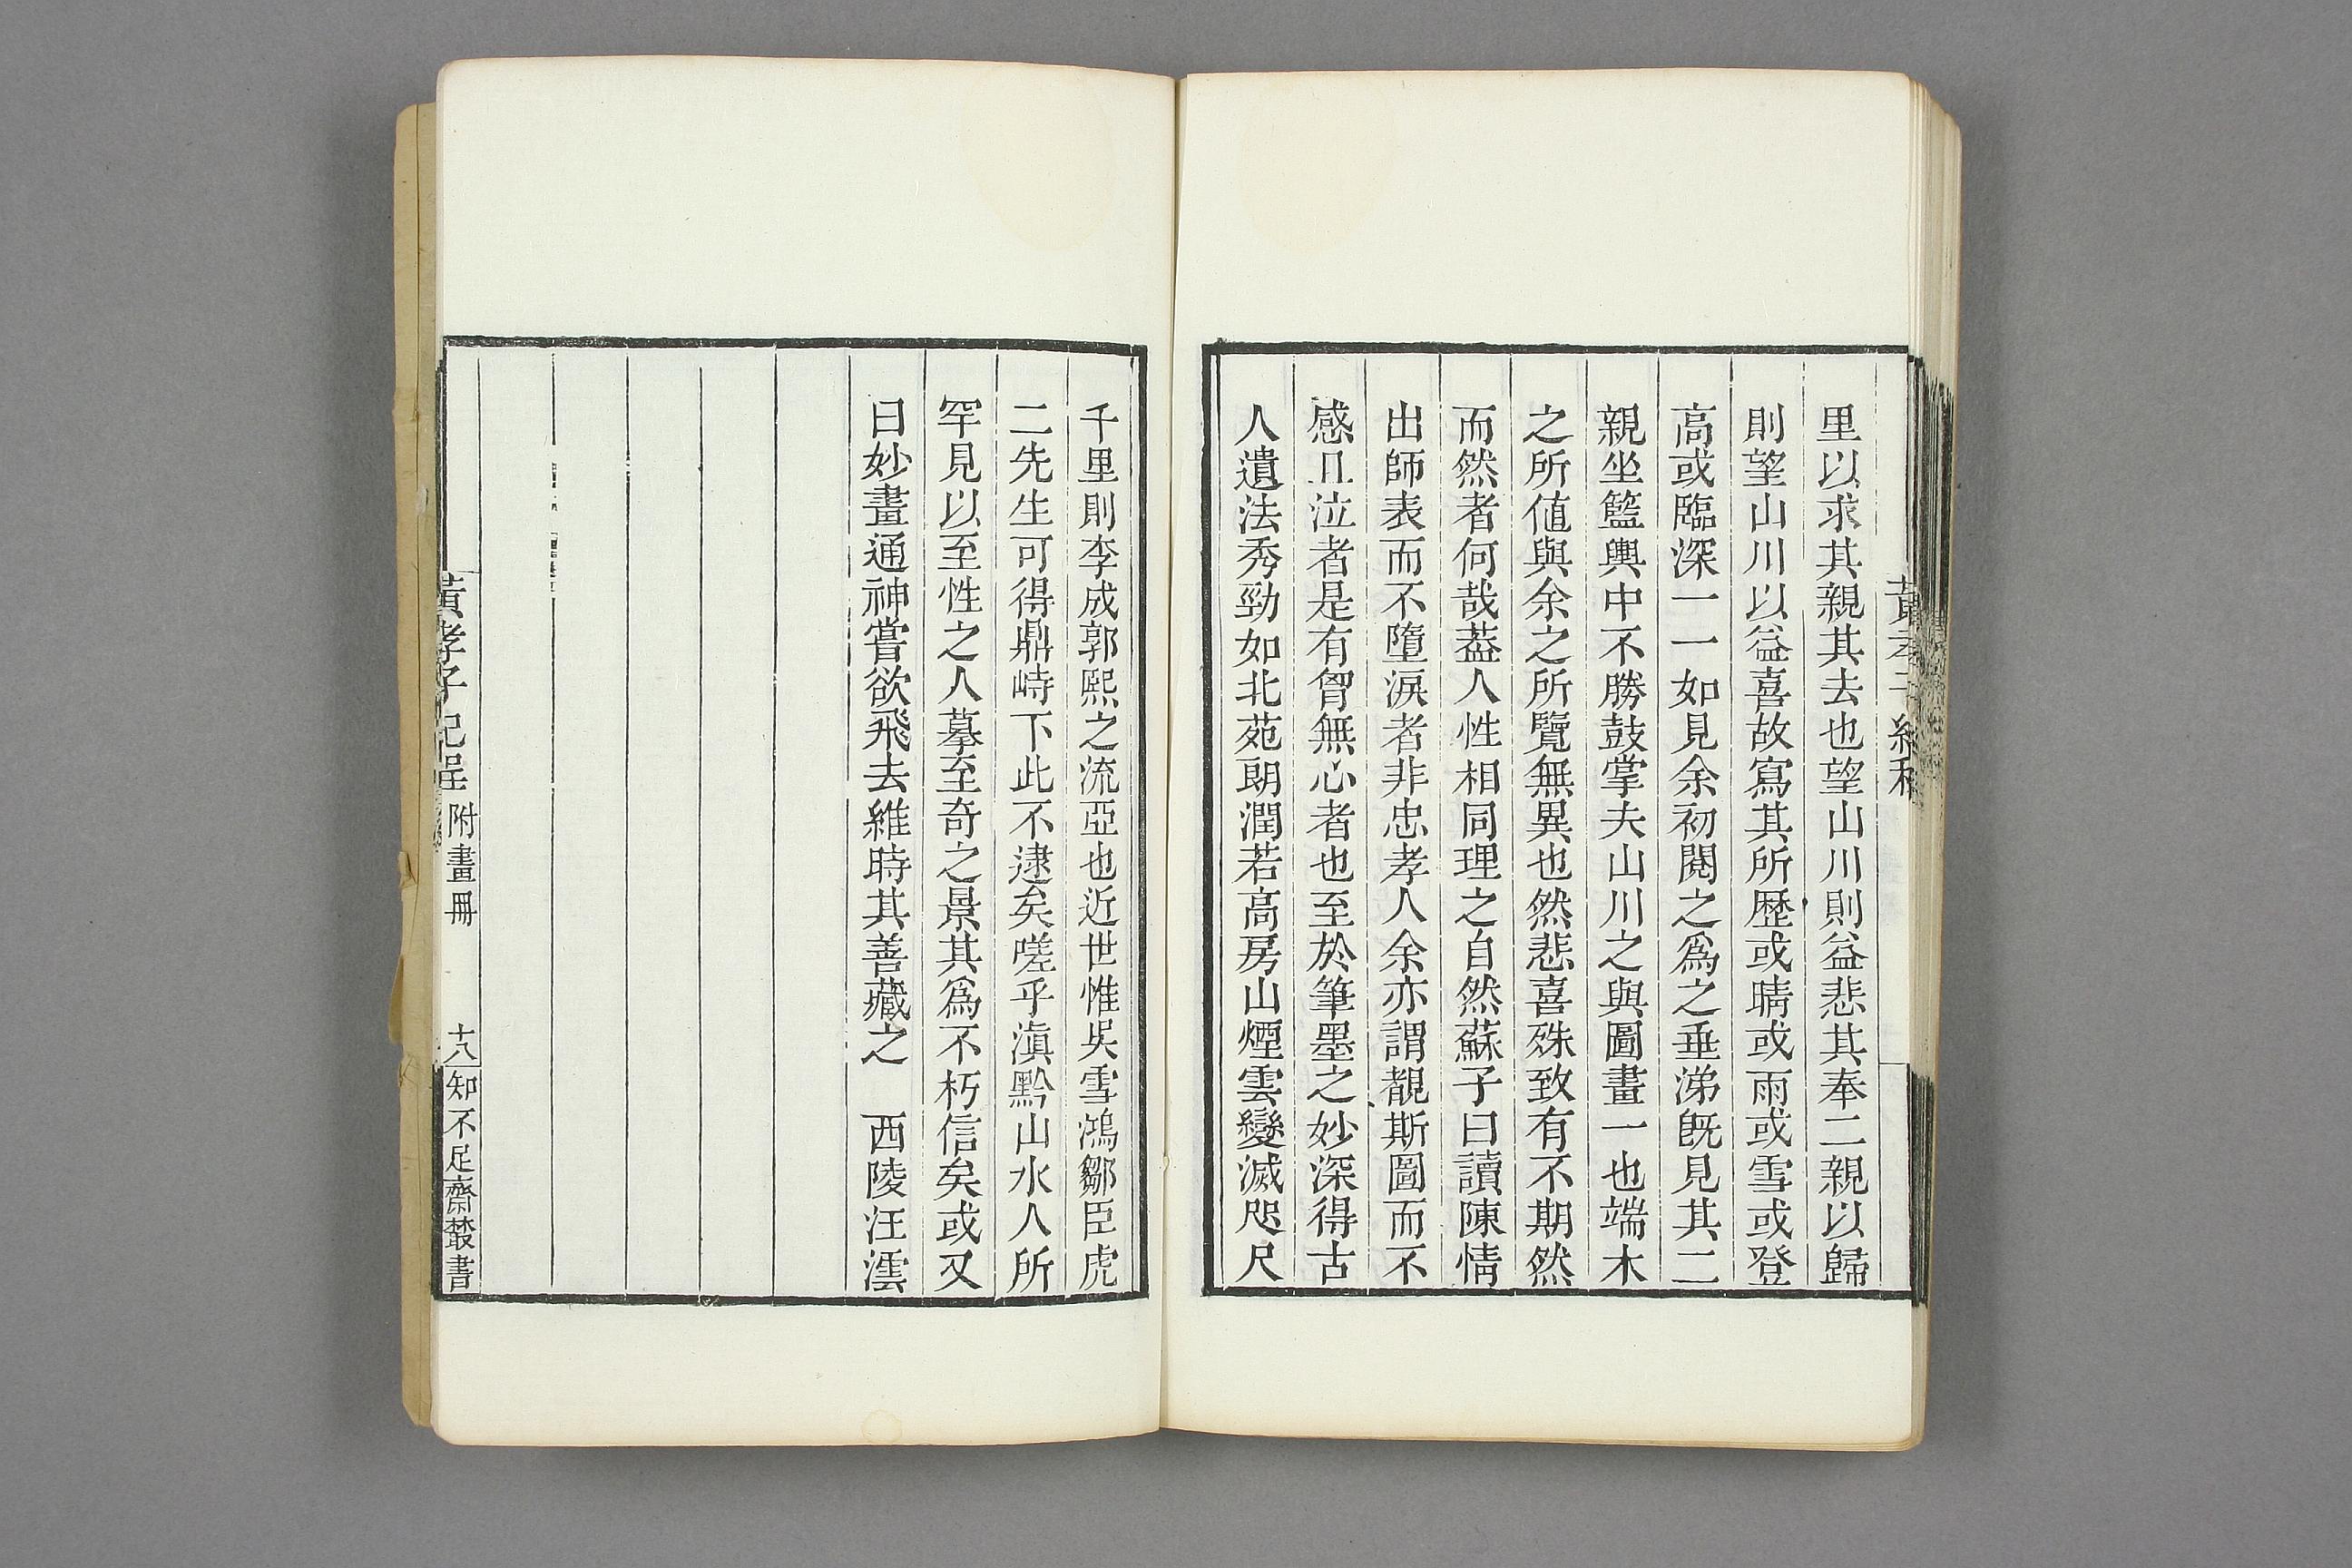 里以求其親其去也望山川則益悲其奉二親以歸
則望山川以益喜故寫其所歷或晴或雨或雪或登
高或臨深一一如見余初閱之為之垂涕旣見其二
親坐籃輿中不勝鼓掌夫山川之與圖畫一也端木
之所値與余之所覽無異也然悲喜殊致有不期然
而然者何哉葢人性相同理之自然蘇子曰讀陳情
出師表而不墮淚者非忠孝人余亦謂覩斯圖而不
感且泣者是有胷無心者也至於筆墨之妙深得古
人遺法秀勁如北苑朗潤若高房山煙雲變滅咫尺
黃孝子紀程
千里則李成郭熙之流亞也近世惟吳雪鴻鄒臣虎
二先生可得鼎峙下此不逮矣嗟乎滇黔山水人所
罕見以至性之人摹至奇之景其爲不朽信矣或又
曰妙畫通神嘗欲飛去維時其善藏之　西陵汪澐
黃孝子紀程 附畫冊 十八 知不足齋叢書